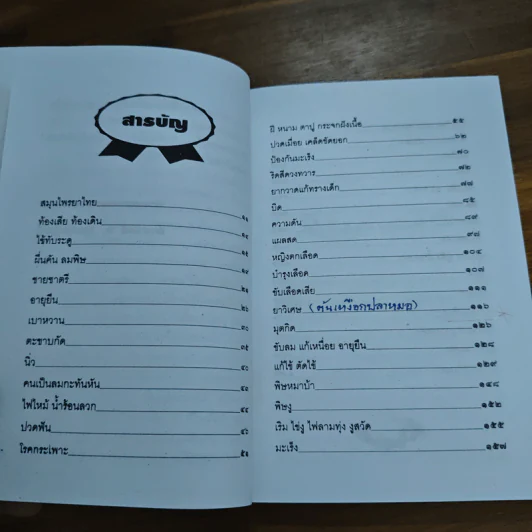 สารบัญ
สมุนไพรยาไทย
ท้องเสีย ท้องเดิน
ใช้ทับระดู
ผื่นคัน ลมพิษ
ชายชาตรี
อายุยืน
เบาหวาน
ตะขาบกัด
นิ่ว
คนเป็นลมกะทันหัน
ไฟไหม้ น้ำร้อนลวก
ปวดฟัน
โรคกระเพาะ
ฝี หนาม ตาปู กระจกฝังเนื้อ ๕๕
ปวดเมื่อย เคล็ดขัดยอก ๖๒
ป้องกันมะเร็ง ๗๐
ริดสีดวงทวาร ๗๒
ยากวาดแก้ทรางเด็ก ๗๗
บิด ๘๕
ความดัน ๘๙
แผลสด ๙๘
หญิงตกเลือด ๑๐๔
บำรุงเลือด ๑๐๗
ขับเลือดเสีย ๑๑๑
ยาวิเศษ (ต้นเหงือกปลาหมอ) ๑๑๖
มุตกิด ๑๒๖
ขับลม แก้เหนื่อย อายุยืน ๑๒๘
แก้ไข้ ตัดไข้ ๑๒๙
พิษหมาบ้า ๑๔๘
พิษงู ๑๕๒
เริม ไข่งู ไฟลามทุ่ง งูสวัด ๑๕๕
มะเร็ง ๑๕๗